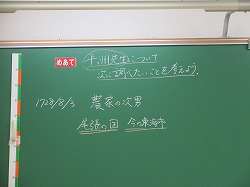 めあて 平洲先生について
次に調べたいことを考えよう。
1728/8/3 農家の次男
尾張の国 今の東海市